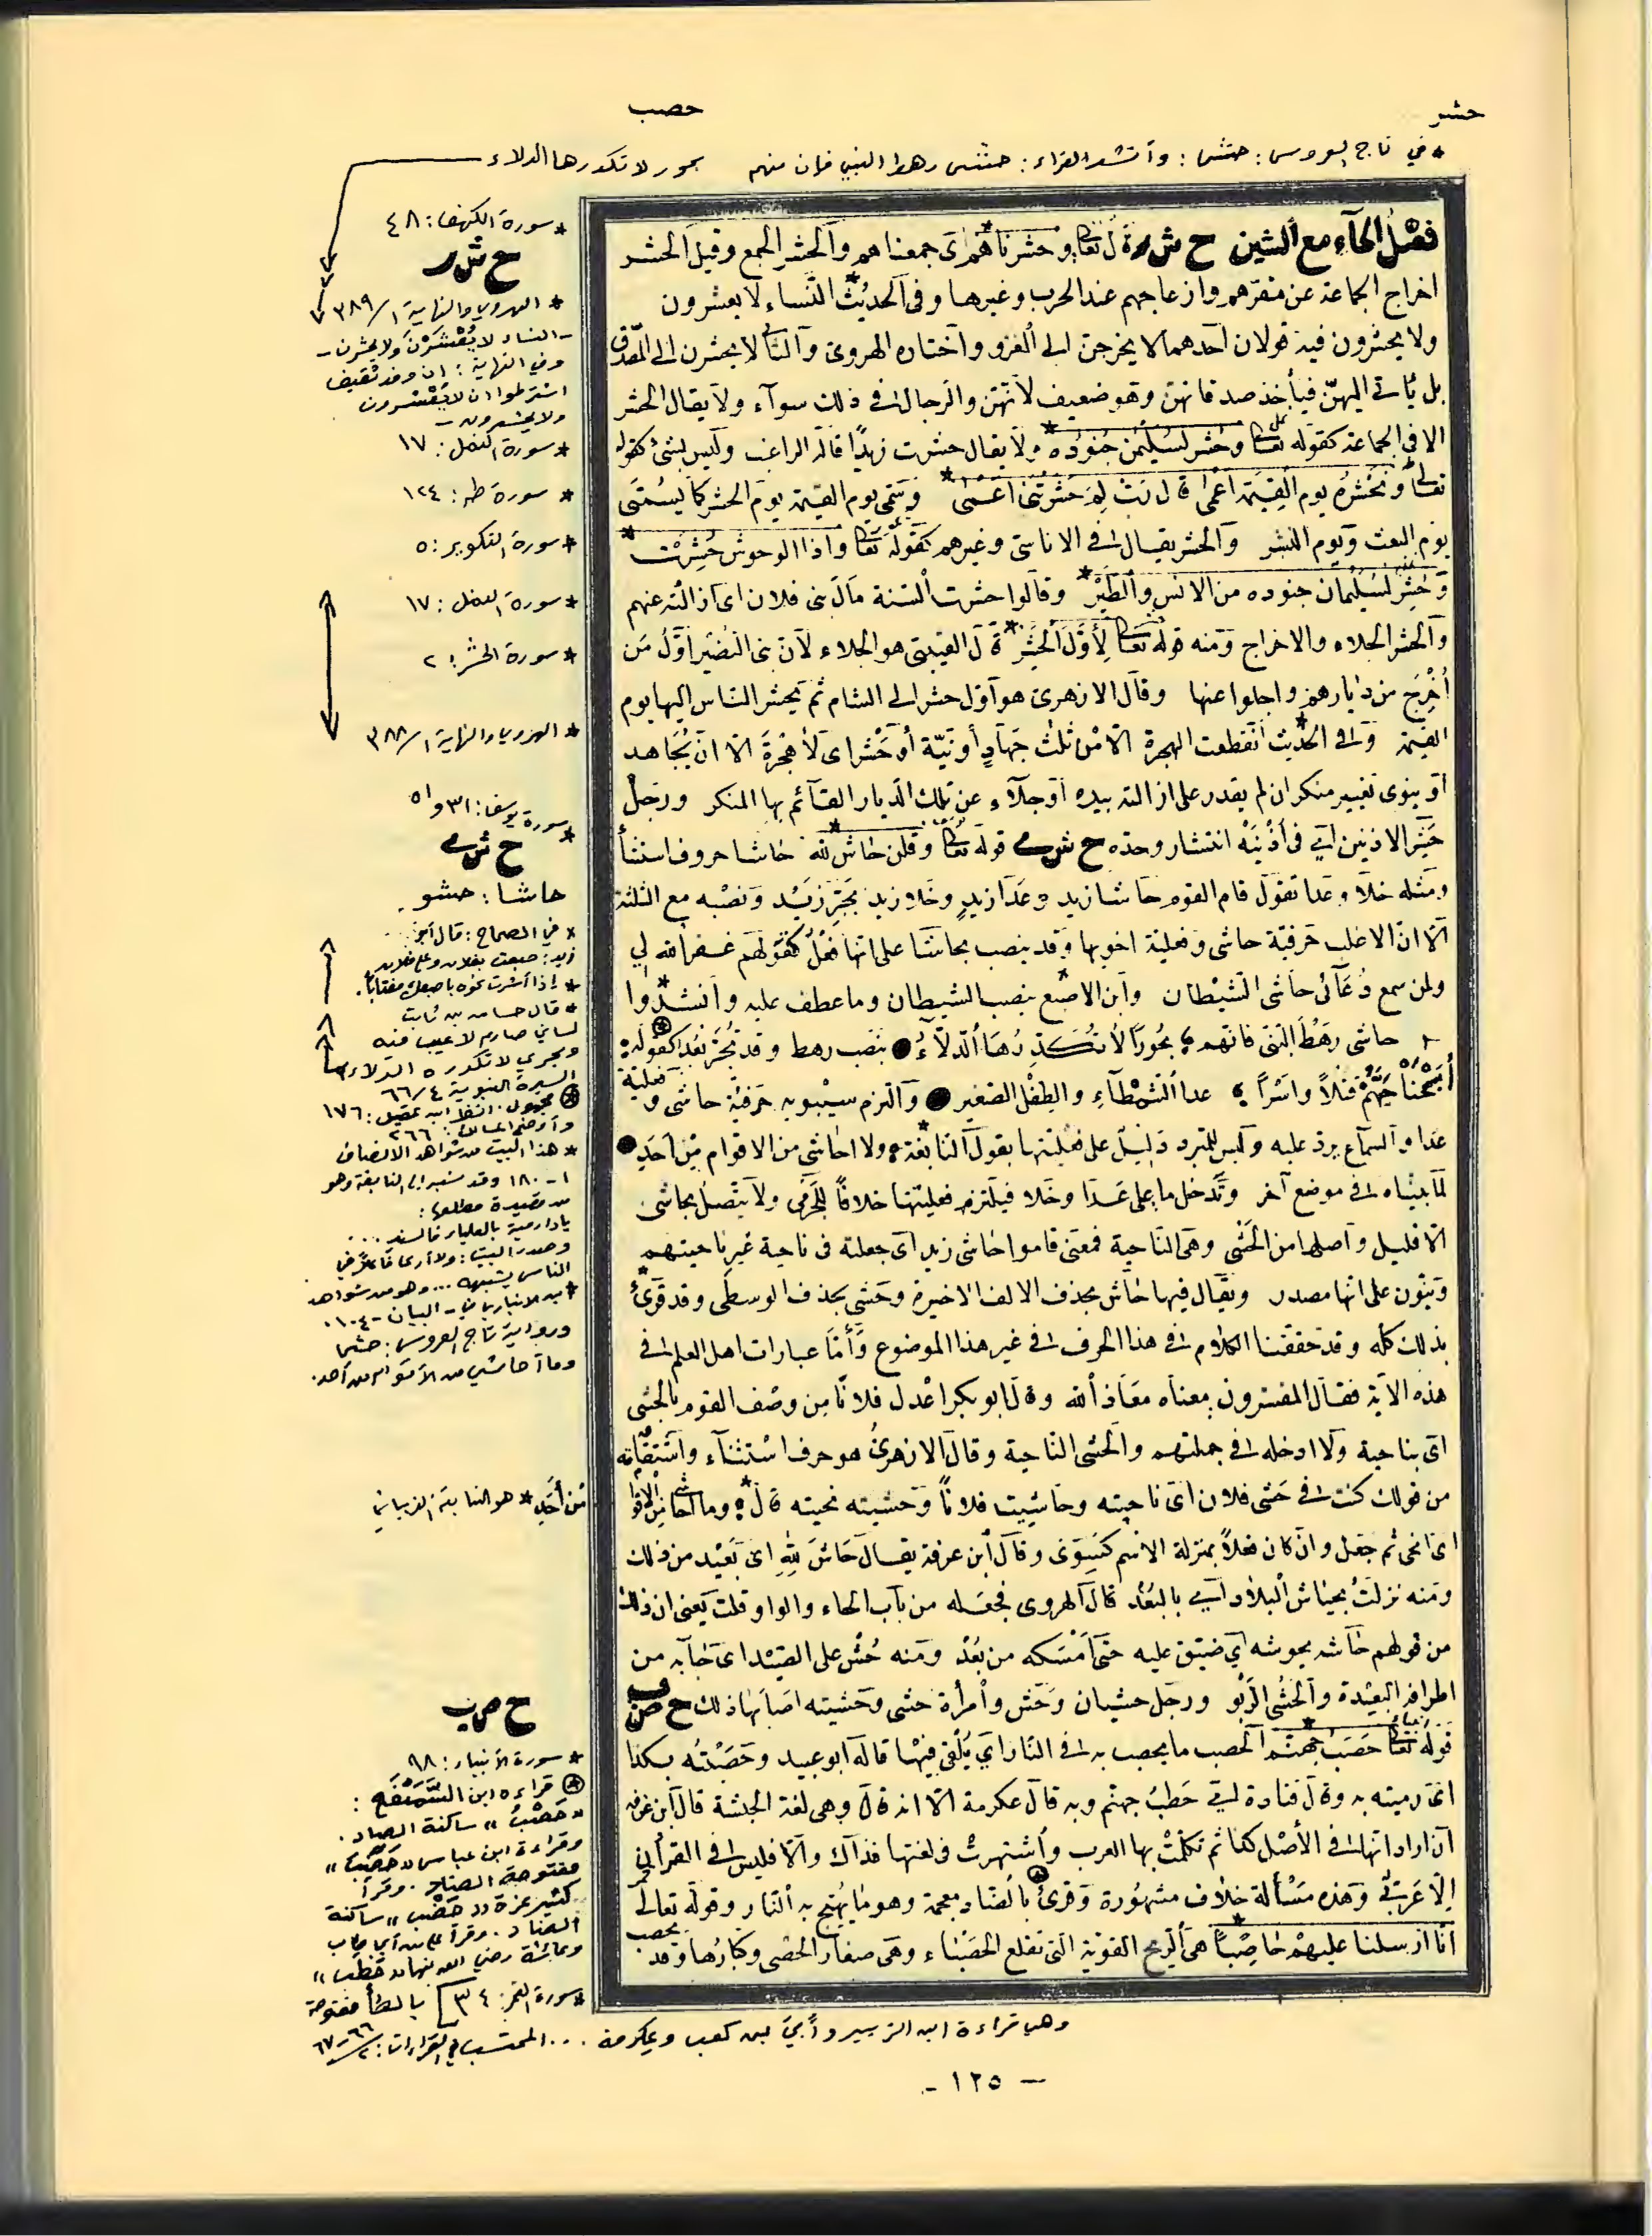 حشر
حصب
* في تاج العروس: حشا: وأنشد الفراء: حشى رهط النبي فإن منهم بحور لا تكدرها الدلاء
فصل الحآء مع الشين ح ش ر قال تعالى وحشرناهم اى جمعناهم والحشر الجمع وقيل الحشر
اخراج الجماعة عن مقرهم وازعاجهم عند الحرب وغيرها وفى الحديث النساء لا يعشرون
ولا يحشرون فيه قولان احدهما لا يخرجن الى الغزو واختاره الهروى والثانى لا يحشرن الى المصدق
بل يأتى اليهن فيأخذ صدقاتهن وهو ضعيف لانهن والرجال فى ذلك سوآء ولا يقال الحشر
الا فى الجماعة كقوله تعالى وحشر لسليمن جنوده ولا يقال حشرت زيدا قاله الراغب وليس بشئ كقوله
تعالى ونحشره يوم القيمة اعمى قال رب لم حشرتنى اعمى وسمى يوم القيمة يوم الحشر كما يسمى
يوم البعث ويوم النشر والحشر يقال فى الاناسى وغيرهم كقوله تعالى واذا الوحوش حشرت
وحشر لسليمان جنوده من الانس والطير وقالوا حشرت السنة مال بنى فلان اى ازالته عنهم
والحشر الجلاء والاخراج ومنه قوله تعالى لأول الحشر قال القتيبى هو الجلاء لان بنى النضير اول من
أخرج من ديارهم واجلوا عنها وقال الازهرى هو اول حشر الى الشام ثم يحشر الناس اليها يوم
القيمة وفى الحديث انقطعت الهجرة الا من ثلث جهاد أو نية أو حشر اى لا هجرة الا ان يجاهد
او ينوى تغيير منكر ان لم يقدر على ازالته بيده او جلآء عن تلك الديار القآئم بها المنكر ورجل
حشر الاذنين اى فى اذنيه انتشار وحده ح ش ى قوله تعالى وقلن حاش لله حاشا حروف استثنأ
ومثله خلا وعدا تقول قام القوم حاشا زيد وعدا زيد وخلا زيد بجر زيد ونصبه مع الثلثة
الا ان الاغلب حرفية حاشى وفعلية اخويها وقد ينصب بحاشا على انها فعل كقولهم غفر الله لى
ولمن سمع دعآئى حاشى الشيطان وابن الاصبع بنصب الشيطان وما عطف عليه وانشدوا
حاشى رهط النبى فانهم بحورا لا تكدرها الدلآء بنصب رهط وقد تجر بعد كقوله
أبحنا حيهم قتلا واسرا عدا الشمطآء والطفل الصغير والتزم سيبويه حرفية حاشى وفعلية
عدا والسماع يرد عليه وليس للمبرد دليل على فعليتها بقول النابغة ولا احاشى من الاقوام من احد
لما بيناه فى موضع آخر وتدخل ما على عدا وخلا فيلتزم فعليتها خلافا للجرمى ولا يتصل بحاشى
الا قليل واصلها من الحشى وهى الناحية فمعنى قاموا حاشى زيد اى جعلته فى ناحية غير ناحيتهم
وينون على انها مصدر ويقال فيها حاش بحذف الالف الاخيرة وحشى بحذف الوسطى وقد قرئ
بذلك كله وقد حققنا الكلام فى هذا الحرف فى غير هذا الموضوع وأما عبارات اهل العلم فى
هذه الآية فقال المفسرون معناه معاذ الله وقال ابو بكر اعدل فلانا من وصف القوم بالحشى
اى بناحية ولا ادخله فى جملتهم والحشى الناحية وقال الازهرى هو حرف استثنآء واشتقاقه
من قولك كنت فى حشى فلان اى ناحيته وحاشيت فلانا وحشيته نحيته قال وما احاشى من الاقوام
اى انحى ثم جعل وان كان فعلا بمنزلة الاسم كسوى وقال ابن عرفة يقال حاش لله اى بعيد من ذلك
ومنه نزلت بحياش البلاد اى بالبعد قال الهروى فجعله من باب الحاء والواو قلت يعنى ان ذلك
من قولهم حاشه يحوشه اى ضيق عليه حتى امسكه من بعد ومنه حش على الصيد اى جابه من
اطرافه البعيدة والحشى الربو ورجل حشيان وحش وامرأة حشى وحشيته اصابها ذلك ح ص ب
قوله تعالى حصب جهنم الحصب ما يحصب به فى النار اى يلقى فيها قاله ابو عبيد وحصبته بكذا
اى رميته به وقال قتادة اى حطب جهنم وبه قال عكرمة الا انه قال وهى لغة الحبشة قال ابن عرفة
ان اراد انها فى الأصل كذا ثم تكلمت بها العرب واشتهرت فى لغتها فذاك والا فليس فى القرآن
إلا عربى وهذه مسألة خلاف مشهورة وقرئ بالضاد معجمة وهو ما يهيج به النار وقوله تعالى
انا ارسلنا عليهم حاصبا هى الريح القوية التى تقلع الحصباء وهى صغار الحصى وكبارها وقد يحصب
* سورة الكهف: ٤٨
ح ش ر
* الهروي والنهاية ١/٣٨٩
- النساء لا يُعْشَرْنَ ولا يحشرن -
وفي النهاية: ان وفد ثقيف
اشترطوا ان لا يُعْشرون
ولا يحشرون -
* سورة النمل: ١٧
* سورة طه: ١٢٤
* سورة التكوير: ٥
* سورة النمل: ١٧
* سورة الحشر: ٢
* الهروي والنهاية ١/٣٨٨
* سورة يوسف: ٣١ و ٥١
ح ش ى
حاشا: حشو
* في الصحاح: قال أبو
زيد: صبعت بفلان وعلى فلان
* إذا أشرت نحوه باصبعك مغتابا.
* قال حسان بن ثابت
لساني صارم لا عيب فيه
وبحري لا تكدره الدلاء
السيرة النبوية ٤/٦٦
* مجهول. انظر ابن عقيل: ١٧٦
وأوضح المسالك: ٢٦٦
* هذا البيت من شواهد الانصاف
١-١٨٠ وقد نسبه إلى النابغة وهو
من قصيدة مطلعها:
يا دار مية بالعلياء فالسند ...
وصدر البيت: ولا أرى فاعلا في
الناس يشبهه ... وهو من شواهد
* ابن الانباري في - البيان - ١٠٤.
ورواية تاج العروس: حشا
وما أحاشي من الأقوام من أحد.
من أحد * هو النابغة الذبياني
ح ص ب
* سورة الأنبياء: ٩٨
* قراءة ابن السَّمَيْفَع:
"حَصْبُ" ساكنة الصاد.
وقراءة ابن عباس "حَضَبُ"
مفتوحة الضاد. وقرأ
كثير عزة "حَضْبُ" ساكنة
الضاد. وقرأ علي بن أبي طالب
وعائشة رضي الله عنهما "حَطَب"
* سورة القمر: ٣٤] بالطاء مفتوحة
وهي قراءة ابن الزبير وأُبيّ بن كعب وعكرمة ... المحتسب في القراءات: ٢/٦٦-٦٧
- ١٢٥ -